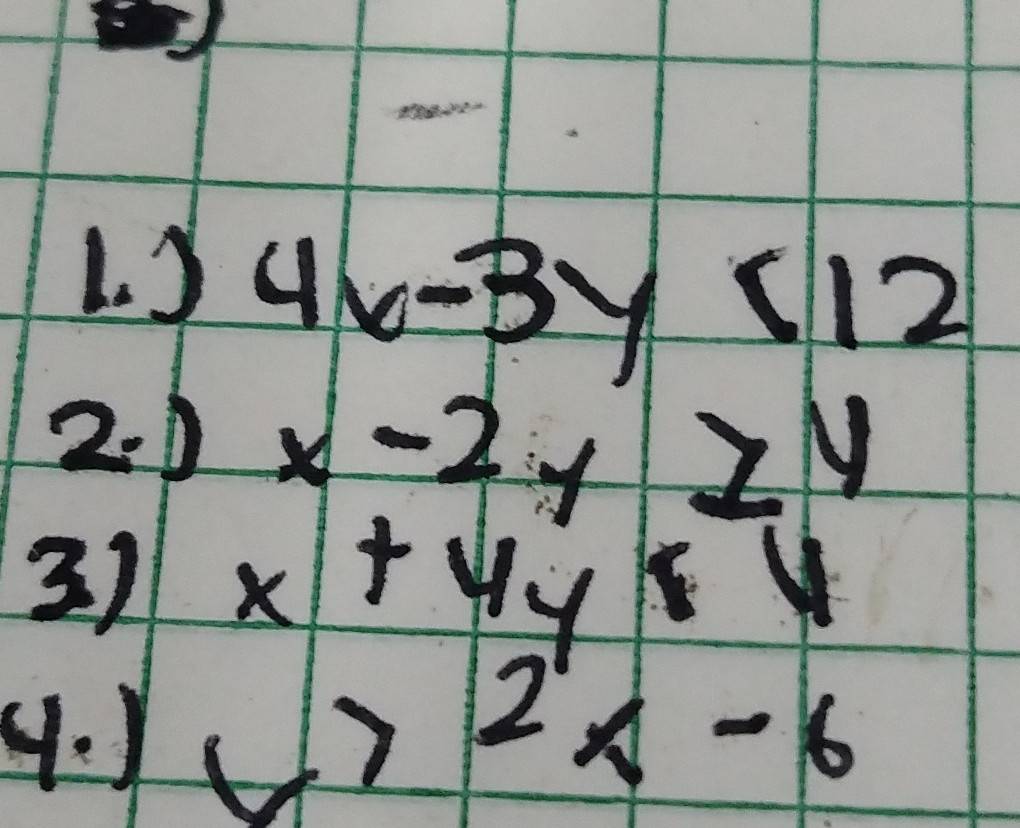 )
1.) 4x-3y < 12
2.) x - 2y ≥ 4
3) x + 4y < 4
4.) y > 2x - 6